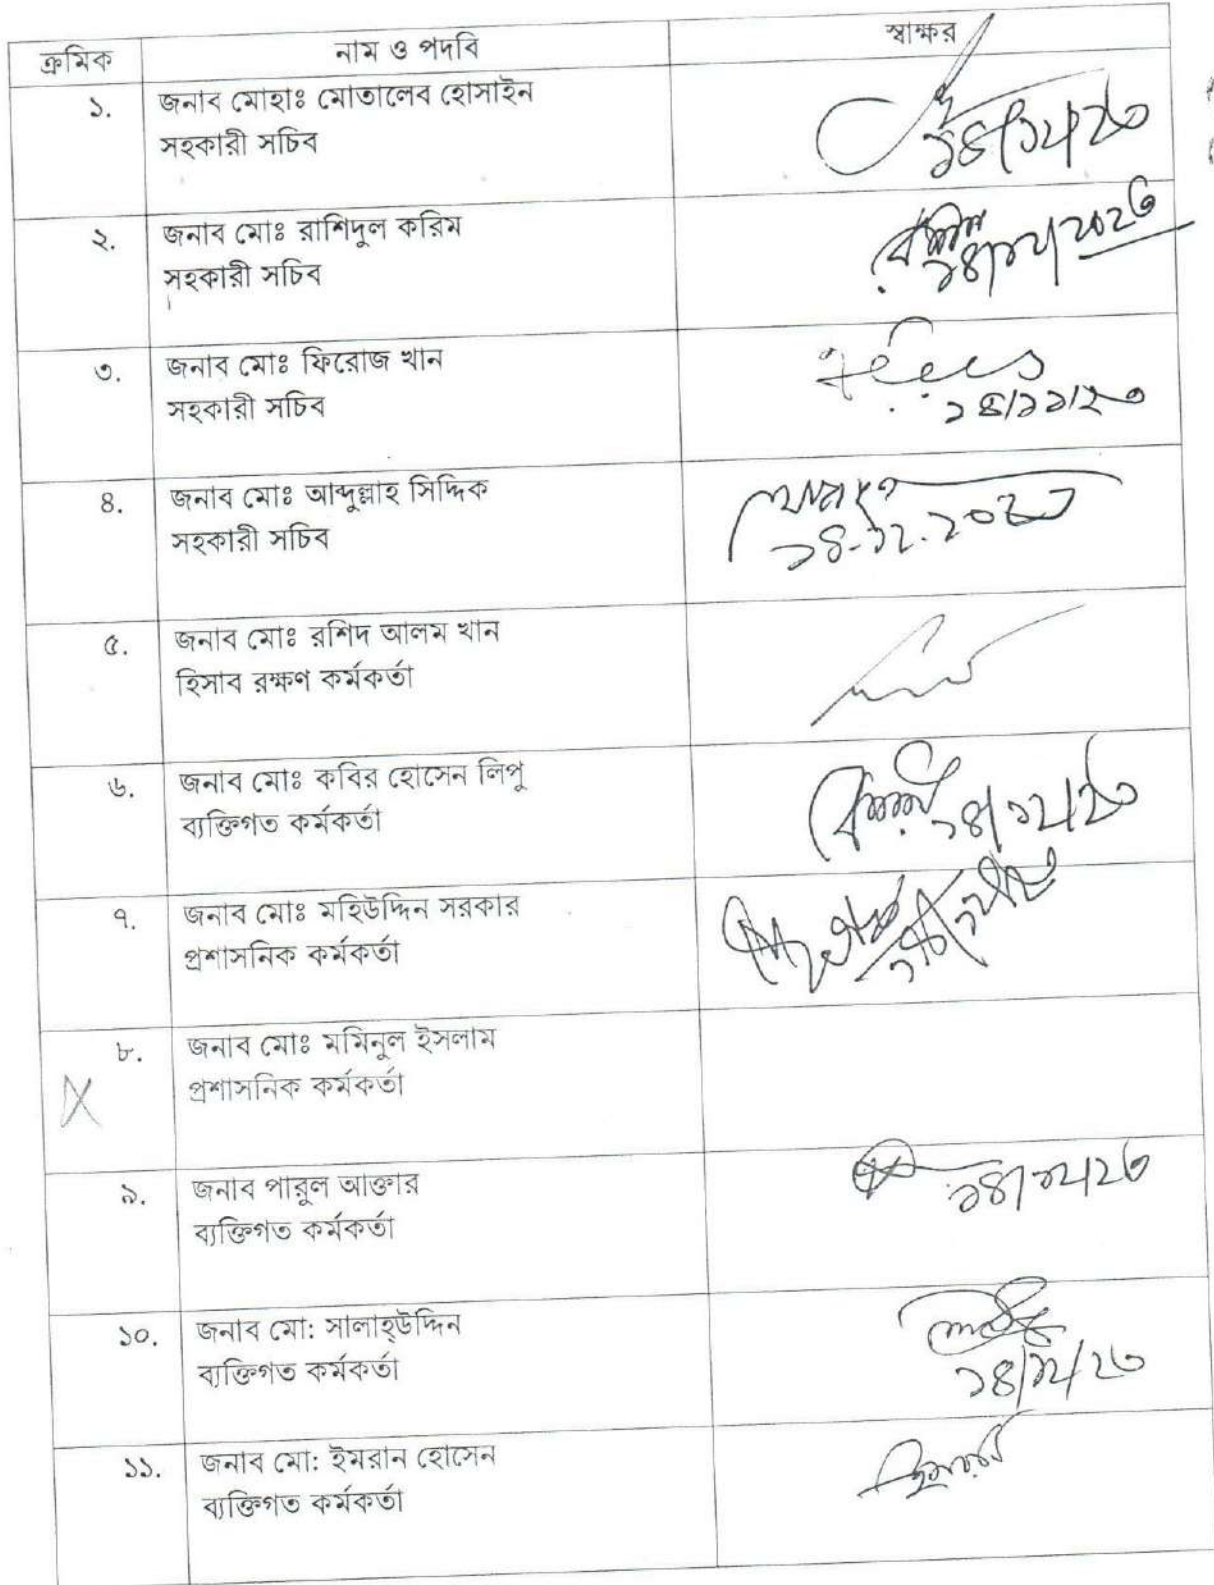 ক্রমিক নাম ও পদবি স্বাক্ষর
১. জনাব মোহাঃ মোতালেব হোসাইন
সহকারী সচিব
১৪/১২/২৩
২. জনাব মোঃ রাশিদুল করিম
সহকারী সচিব
১৪/১২/২০২৩
৩. জনাব মোঃ ফিরোজ খান
সহকারী সচিব
৪. জনাব মোঃ আব্দুল্লাহ সিদ্দিক
সহকারী সচিব
১৪-১২-২০২৩
৫. জনাব মোঃ রশিদ আলম খান
হিসাব রক্ষণ কর্মকর্তা
৬. জনাব মোঃ কবির হোসেন লিপু
ব্যক্তিগত কর্মকর্তা
১৪/১২/২৩
৭. জনাব মোঃ মহিউদ্দিন সরকার
প্রশাসনিক কর্মকর্তা
৮. জনাব মোঃ মমিনুল ইসলাম
প্রশাসনিক কর্মকর্তা
৯. জনাব পারুল আক্তার
ব্যক্তিগত কর্মকর্তা
১৪/১২/২৩
১০. জনাব মো: সালাহ্উদ্দিন
ব্যক্তিগত কর্মকর্তা
১৪/১২/২৩
১১. জনাব মো: ইমরান হোসেন
ব্যক্তিগত কর্মকর্তা